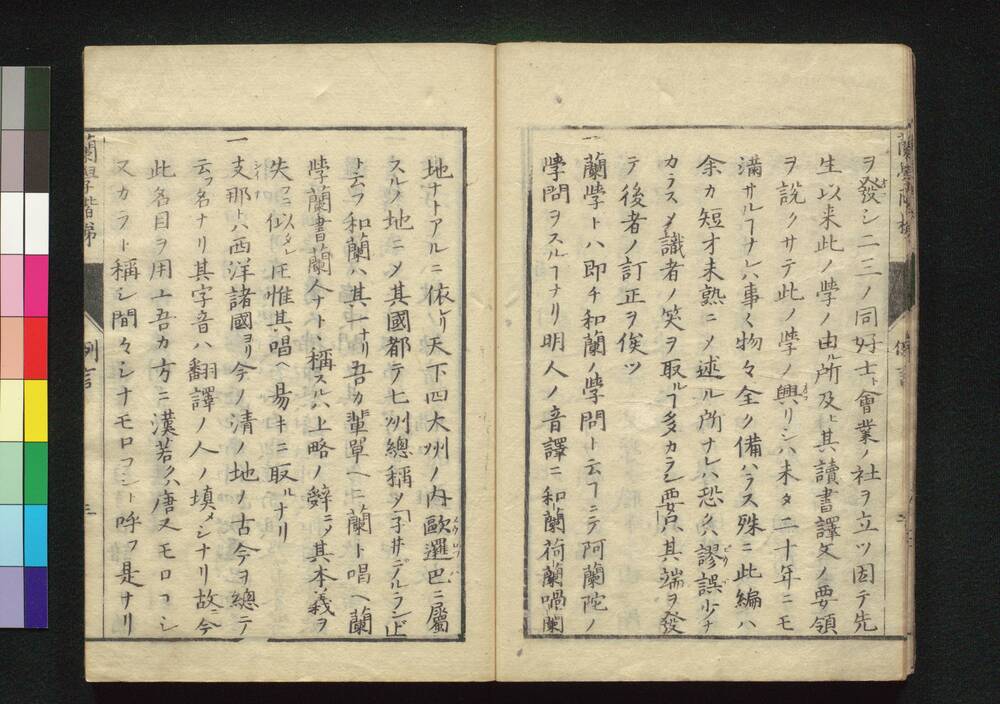 ヲ發シ二三ノ同好士ト會業ノ社ヲ立ツ因テ先
生以来此ノ學ノ由ル所及ヒ其讀書譯文ノ要領
ヲ説クサテ此ノ學ノ興リシハ未タ二十年ニモ
滿サルヿナレハ事々物々全ク備ハラス殊ニ此編ハ
余カ短才未熟ニメ述ル所ナレハ恐クハ謬誤少ナ
カラスメ識者ノ笑ヲ取ルヿ多カラン要只其端ヲ發
テ後者ノ訂正ヲ俟ツ
一蘭學トハ即チ和蘭ノ學問ト云フヿニテ阿蘭陀ノ
學問ヲスルヿナリ明人ノ音譯ニ和蘭荷蘭喎蘭
地ナトアルニ依レリ天下四大州ノ内歐邏巴ニ屬
スルノ地ニメ其國都テ七州總稱メ子ヰデルランドト
ト云フ和蘭ハ其一ナリ吾カ輩單ヘニ蘭ト唱ヘ蘭
學蘭書蘭人ナトヽ稱スルハ上略ノ辭ニメ其本義ヲ
失フニ似タレ𪜈惟其唱ヘ易キニ取ルナリ
一支那トハ西洋諸國ヨリ今ノ清ノ地ノ古今ヲ總テ
云フ名ナリ其字音ハ翻譯ノ人ノ填メシナリ故ニ今
此名目ヲ用ユ吾カ方ニ漢若クハ唐又モロコシ
又カラト稱シ間々シナモロコシト呼フ是ナリ
蘭學階梯
例言